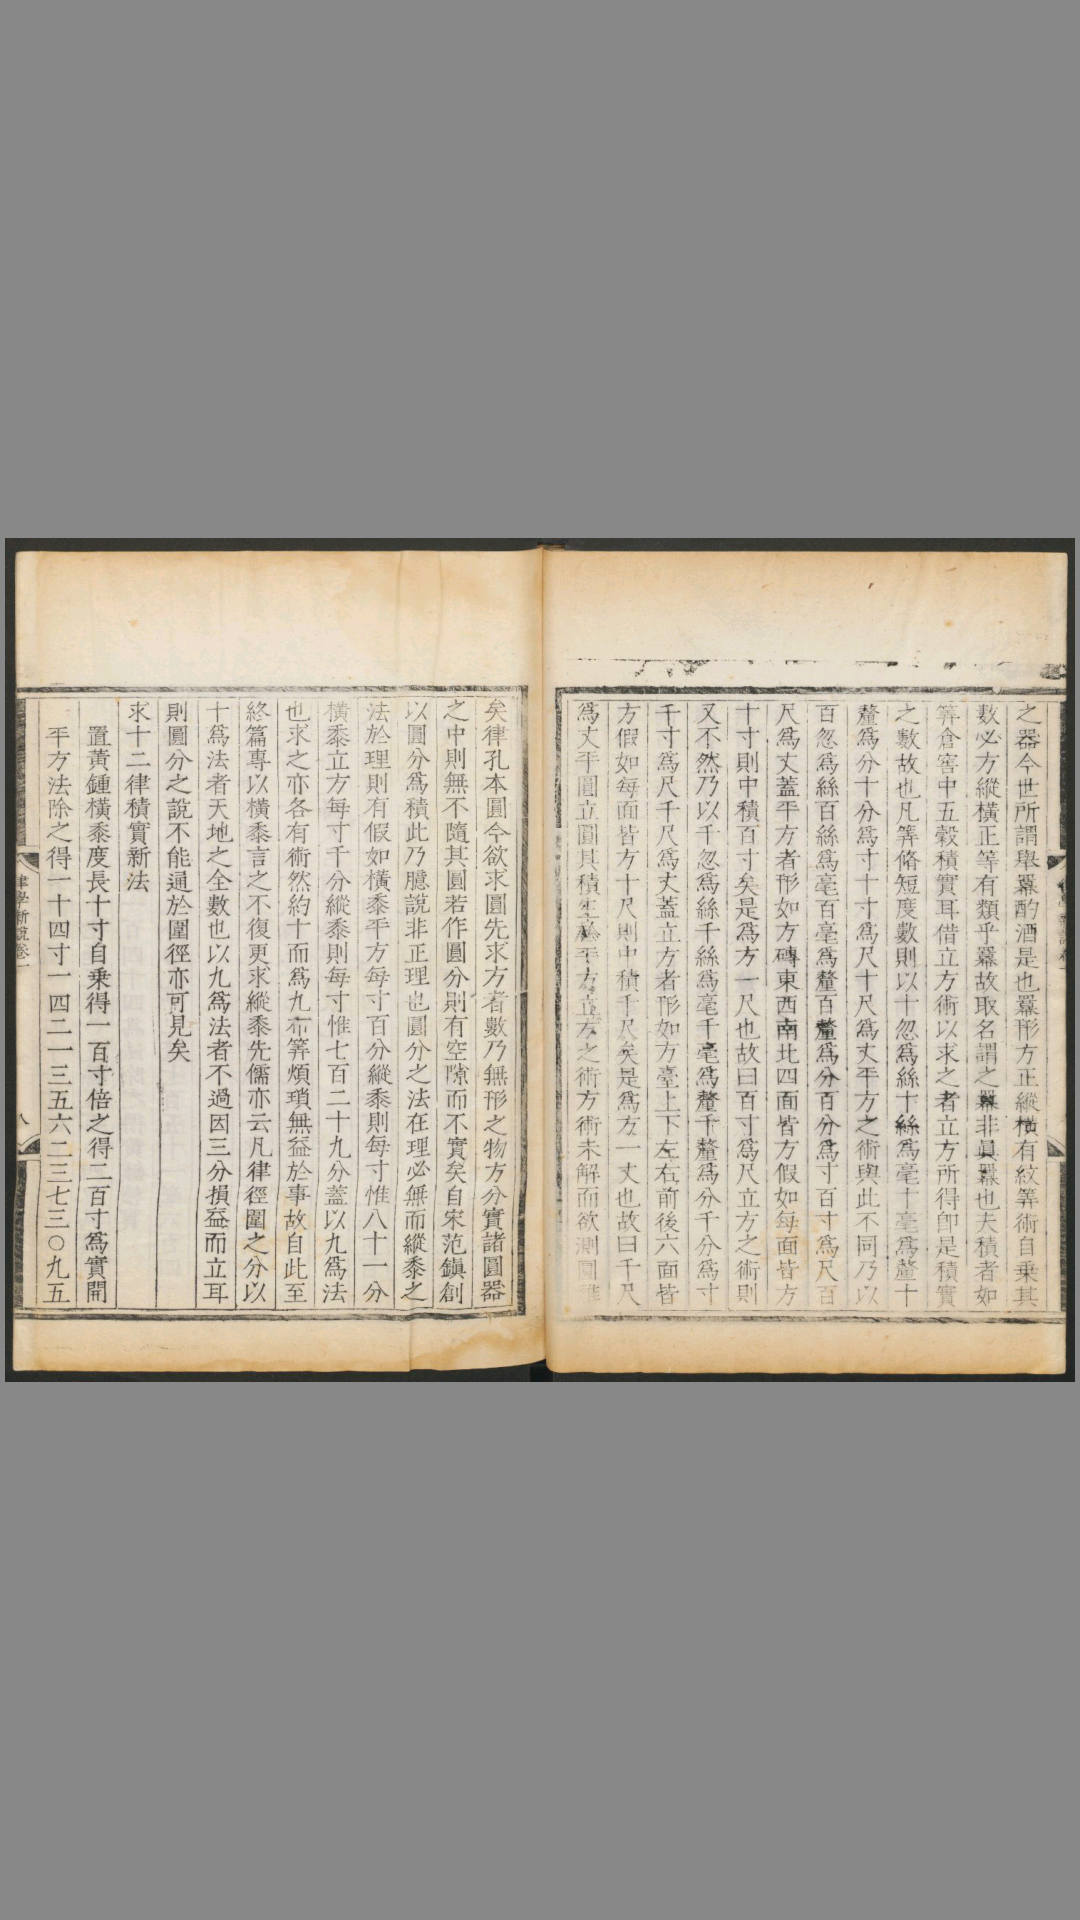 之器今世所謂舉羃酌酒是也羃形方正縱橫有紋筭術自乗其
數必方縱橫正等有類乎羃故取名謂之羃非眞羃也夫積者如
筭倉窖中五穀積實耳借立方術以求之者立方所得卽是積實
之數故也凡筭脩短度數則以十忽爲絲十絲爲毫十毫爲釐十
釐爲分十分爲寸十寸爲尺十尺爲丈平方之術與此不同乃以
百忽爲絲百絲爲毫百毫爲釐百釐爲分百分爲寸百寸爲尺百
尺爲丈蓋平方者形如方磚東西南北四面皆方假如每面皆方
十寸則中積百寸矣是爲方一尺也故曰百寸爲尺立方之術則
又不然乃以千忽爲絲千絲爲毫千毫爲釐千釐爲分千分爲寸
千寸爲尺千尺爲丈蓋立方者形如方臺上下左右前後六面皆
方假如每面皆方十尺則中積千尺矣是爲方一丈也故曰千尺
爲丈平圓立圓其積生於平方立方之術方術未解而欲測圓難
矣律孔本圓今欲求圓先求方者數乃無形之物方分實諸圓器
之中則無不隨其圓若作圓分則有空隙而不實矣自宋范鎭創
以圓分爲積此乃臆說非正理也圓分之法在理必無而縱黍之
法於理則有假如橫黍平方每寸百分縱黍則每寸惟八十一分
橫黍立方每寸千分縱黍則每寸惟七百二十九分蓋以九爲法
也求之亦各有術然約十而爲九布筭煩瑣無益於事故自此至
終篇專以橫黍言之不復更求縱黍先儒亦云凡律徑圍之分以
十爲法者天地之全數也以九爲法者不過因三分損益而立耳
則圓分之說不能通於圍徑亦可見矣
求十二律積實新法
置黃鍾橫黍度長十寸自乗得一百寸倍之得二百寸爲實開
平方法除之得一十四寸一四二一三五六二三七三〇九五
律學新說卷一
八